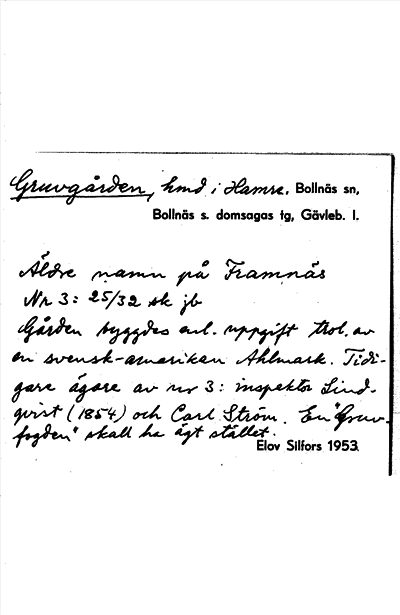 Gruvgården, hmd i Hamre. Bollnäs sn,
Bollnäs s. domsagas tg, Gävleb. l.
Äldre namn på Framnäs
Nr 3: 25/32 sk jb
Gården byggdes enl. uppgift trol. av
en svensk-amerikan Ahlmark. Tidi-
gare ägare av nr 3: inspektor Lind-
qvist (1854) och Carl Ström. En "Gruv-
fogden" skall ha ägt stället.
Elov Silfors 1953.